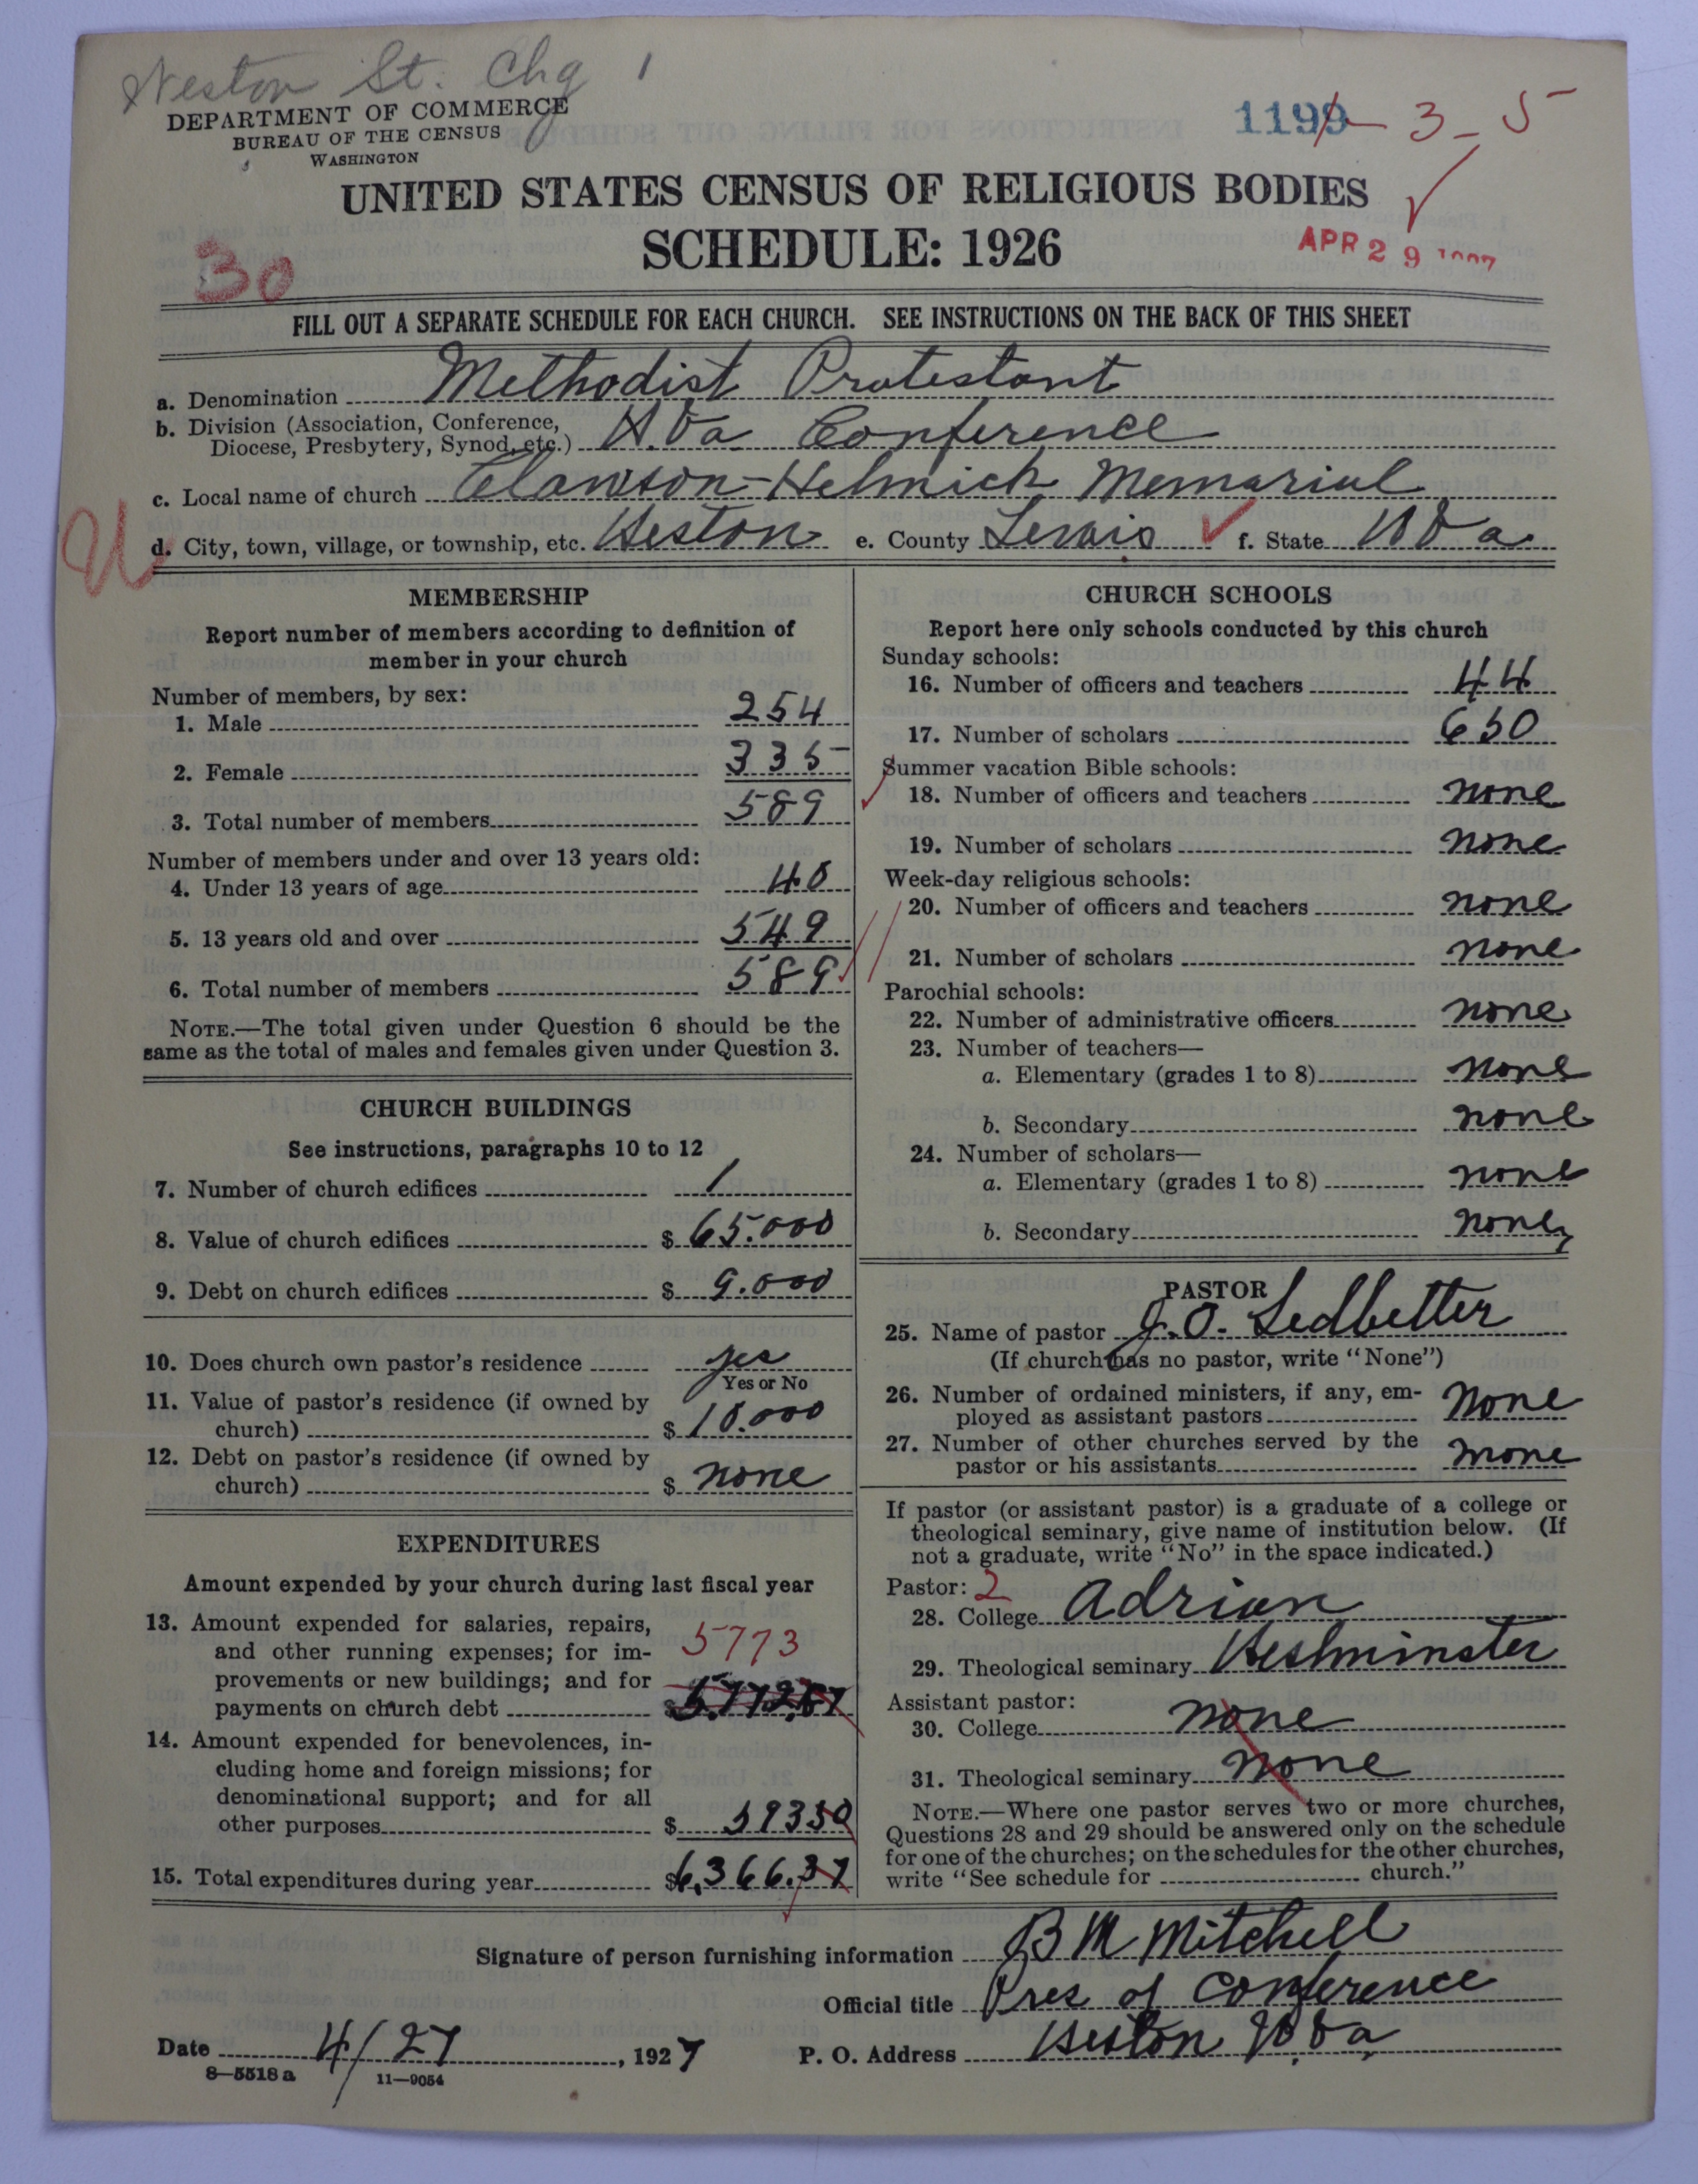 Weston St. Chg 1
DEPARTMENT OF COMMERCE
BUREAU OF THE CENSUS
WASHINGTON
1199 - 3 - 5
UNITED STATES CENSUS OF RELIGIOUS BODIES
SCHEDULE: 1926
APR 29 1927
30
FILL OUT A SEPARATE SCHEDULE FOR EACH CHURCH. SEE INSTRUCTIONS ON THE BACK OF THIS SHEET
a. Denomination Methodist Protestant
b. Division (Association, Conference,
Diocese, Presbytery, Synod, etc.) W.Va Conference
c. Local name of church Clawson-Helmick Memorial
d. City, town, village, or township, etc. Weston e. County Lewis f. State W Va
U
MEMBERSHIP
Report number of members according to definition of
member in your church
Number of members, by sex:
1. Male 254
2. Female 335
3. Total number of members 589
Number of members under and over 13 years old:
4. Under 13 years of age 40
5. 13 years old and over 549
6. Total number of members 589
NOTE.—The total given under Question 6 should be the
same as the total of males and females given under Question 3.
CHURCH BUILDINGS
See instructions, paragraphs 10 to 12
7. Number of church edifices 1
8. Value of church edifices $ 65.000
9. Debt on church edifices $ 9.000
10. Does church own pastor's residence yes
Yes or No
11. Value of pastor's residence (if owned by
church) $ 10.000
12. Debt on pastor's residence (if owned by
church) $ none
EXPENDITURES
Amount expended by your church during last fiscal year
13. Amount expended for salaries, repairs,
and other running expenses; for im-
provements or new buildings; and for
payments on church debt $ 5,772.87
5773
14. Amount expended for benevolences, in-
cluding home and foreign missions; for
denominational support; and for all
other purposes $ 59350
15. Total expenditures during year $6,366.37
CHURCH SCHOOLS
Report here only schools conducted by this church
Sunday schools:
16. Number of officers and teachers 44
17. Number of scholars 650
Summer vacation Bible schools:
18. Number of officers and teachers none
19. Number of scholars none
Week-day religious schools:
20. Number of officers and teachers none
21. Number of scholars none
Parochial schools:
22. Number of administrative officers none
23. Number of teachers—
a. Elementary (grades 1 to 8) none
b. Secondary none
24. Number of scholars—
a. Elementary (grades 1 to 8) none
b. Secondary none
PASTOR
25. Name of pastor J.O. Ledbetter
(If church has no pastor, write "None")
26. Number of ordained ministers, if any, em-
ployed as assistant pastors None
27. Number of other churches served by the
pastor or his assistants none
If pastor (or assistant pastor) is a graduate of a college or
theological seminary, give name of institution below. (If
not a graduate, write "No" in the space indicated.)
Pastor: 2
28. College Adrian
29. Theological seminary Westminster
Assistant pastor:
30. College none
31. Theological seminary none
NOTE.—Where one pastor serves two or more churches,
Questions 28 and 29 should be answered only on the schedule
for one of the churches; on the schedules for the other churches,
write "See schedule for church."
Signature of person furnishing information B M Mitchell
Official title Pres of Conference
Date 4/27, 1927 P. O. Address Weston W.Va
8—5518 a 11—9054